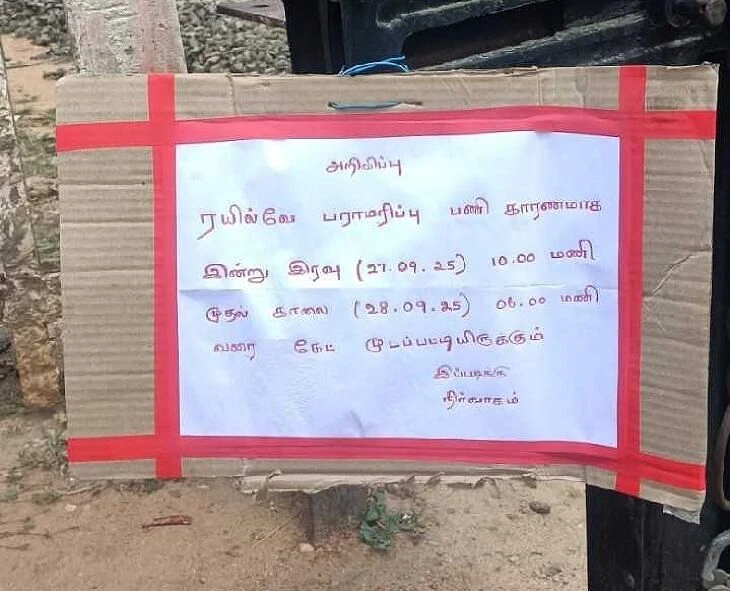 அறிவிப்பு
ரயில்வே பராமரிப்பு பணி காரணமாக
இன்று இரவு (27.09.25) 10.00 மணி
முதல் காலை (28.09.25) 06.00 மணி
வரை கேட் மூடப்பட்டியிருக்கும்
இப்படிக்கு
நிர்வாகம்